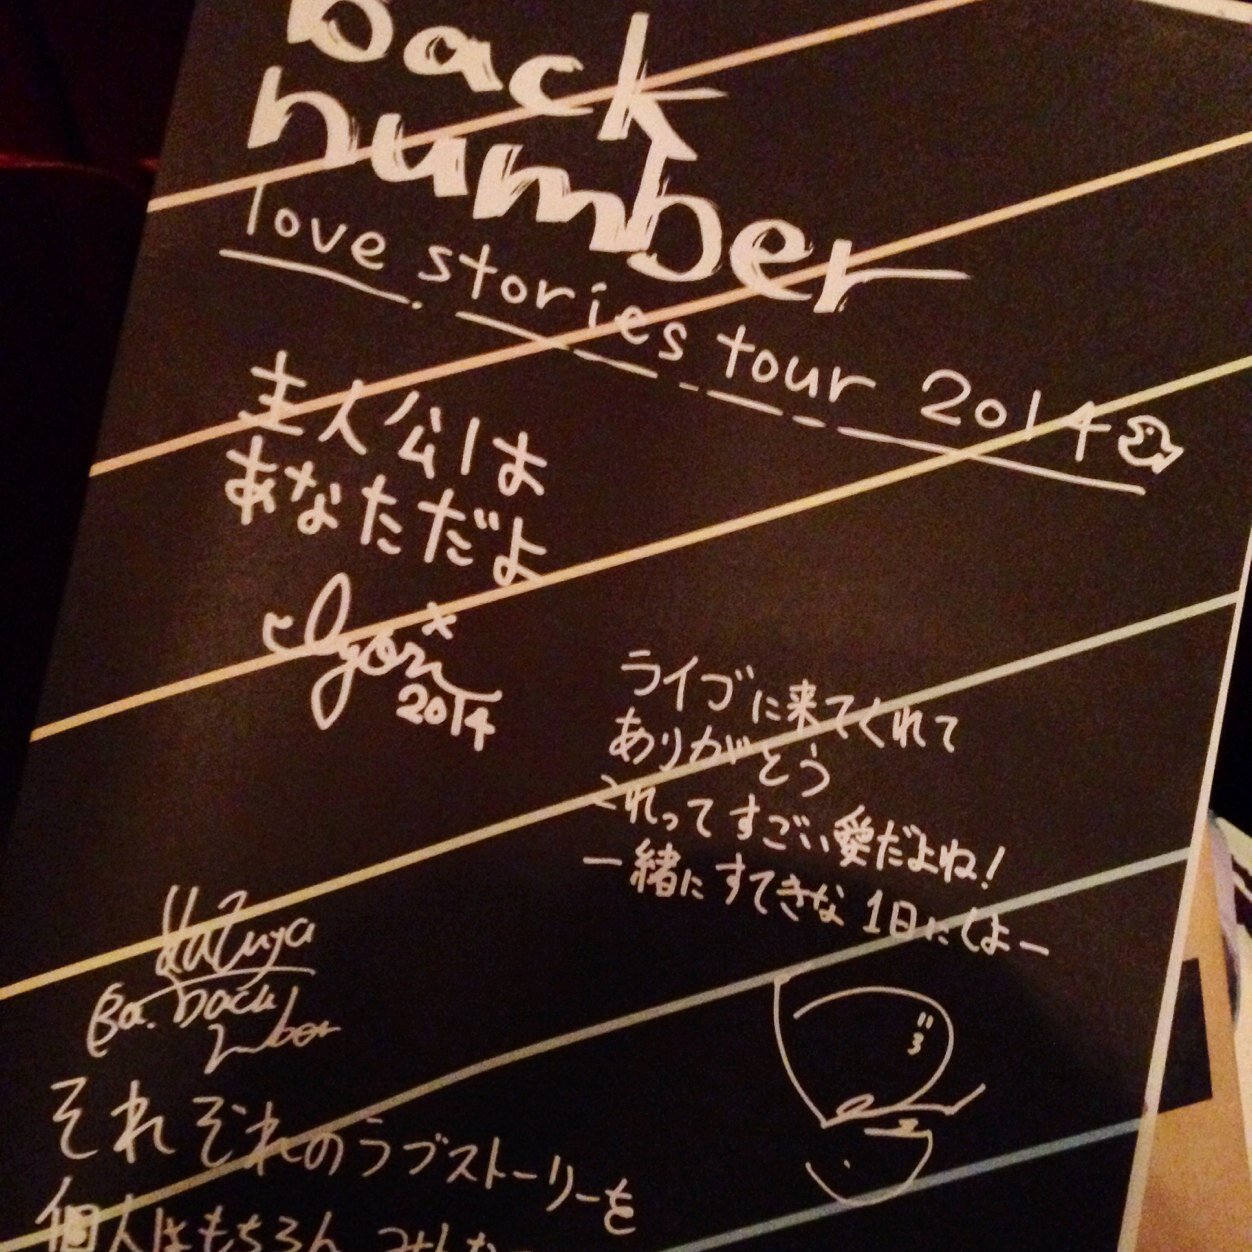 back
number
love stories tour 2014
主人公は
あなただよ
Iyori
2014
ライブに来てくれて
ありがとう
これってすごい愛だよね!
一緒にすてきな1日にしよー
Kazuya
Ba. back
number
それぞれのラブストーリーを
個人はもちろん みんな